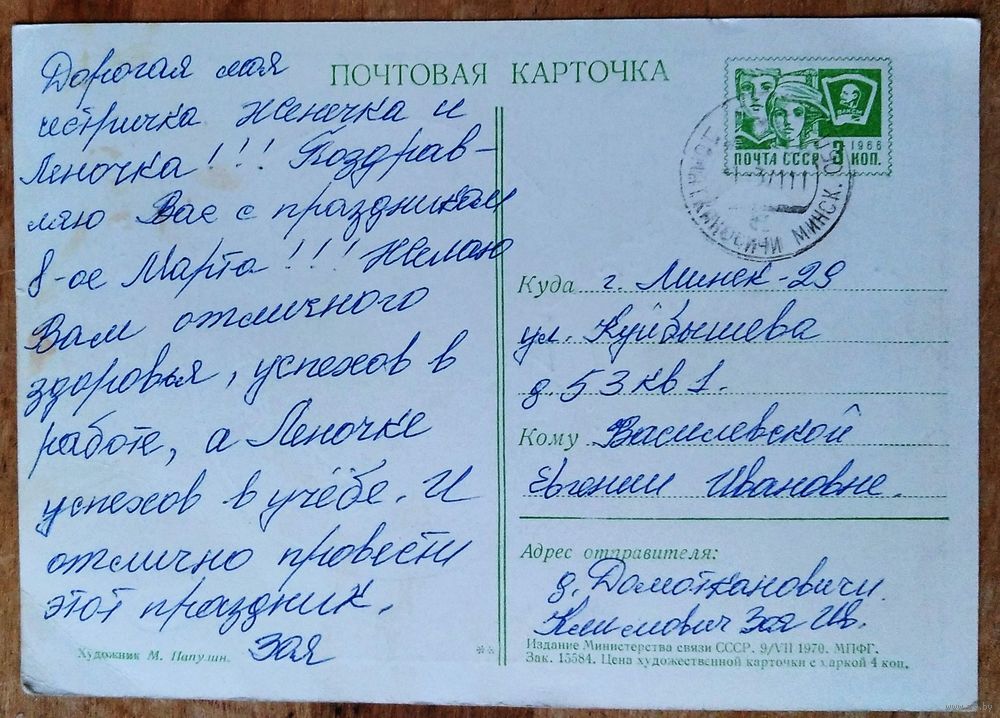 ПОЧТОВАЯ КАРТОЧКА
Дорогая моя
сестричка Женечка и
Леночка!!! Поздрав-
ляю Вас с праздником
8-ое Марта!!! Желаю
Вам отличного
здоровья, успехов в
работе, а Леночке
успехов в учёбе. И
отлично провести
этот праздник.
Зоя
Художник М. Папулин.
ВЛКСМ
1966
ПОЧТА СССР 3 КОП.
МИНСК.
Куда г. Минск-29
ул. Куйбышева
д. 53 кв 1.
Кому Василевской
Евгении Ивановне.
Адрес отправителя:
д. Домоткановичи
Климович Зоя Ив.
Издание Министерства связи СССР. 9/VII 1970. МПФГ.
Зак. 15584. Цена художественной карточки с маркой 4 коп.